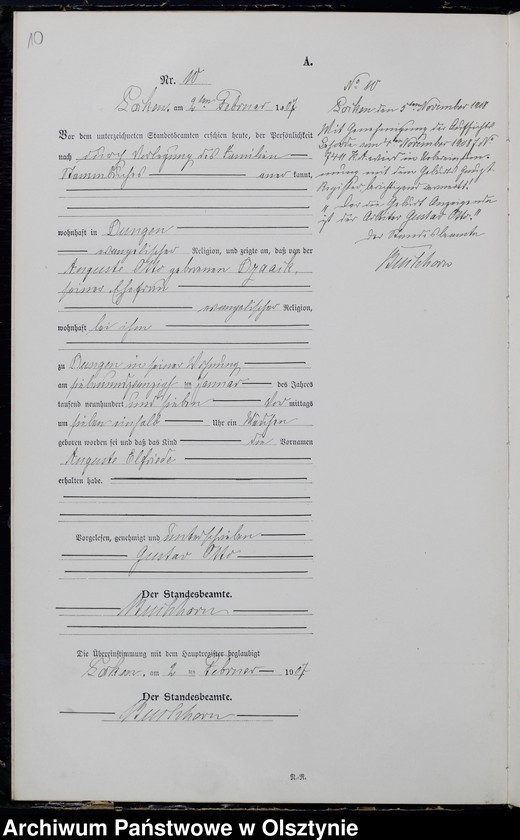 10
A.
Nr. 10
Locken, am 2ten Februar 1907
Vor dem unterzeichneten Standesbeamten erschien heute, der Persönlichkeit
nach durch Vorlegung des Familien
Stammbuches anerkannt,
wohnhaft in Dungen
evangelischer Religion, und zeigte an, daß von der
Auguste Otto geborenen
seiner Ehefrau
evangelischer Religion,
wohnhaft bei ihm
zu Dungen in seiner Wohnung
am siebenundzwanzigsten Januar des Jahres
tausend neunhundert und sieben Vor mittags
um sieben einhalb Uhr ein Mädchen
geboren worden sei und daß das Kind die Vornamen
Auguste Elfriede
erhalten habe.
Vorgelesen, genehmigt und unterschrieben
Gustav Otto
Der Standesbeamte.
Buchhorn
Die Übereinstimmung mit dem Hauptregister beglaubigt
Locken, am 2 ten Februar 1907
Der Standesbeamte.
Buchhorn
N.-R.
No 10
Locken den 5ten November 1908
Mit Genehmigung der Aufsichts
Behörde vom 4ten November 1908
wird in Übereinstim-
mung mit dem Geburts Haupt-
Register berichtigend vermerkt:
"Der die Geburt Anzeigende
ist der Arbeiter Gustav Otto."
Der Standesbeamte
Buchhorn
Archiwum Państwowe w Olsztynie